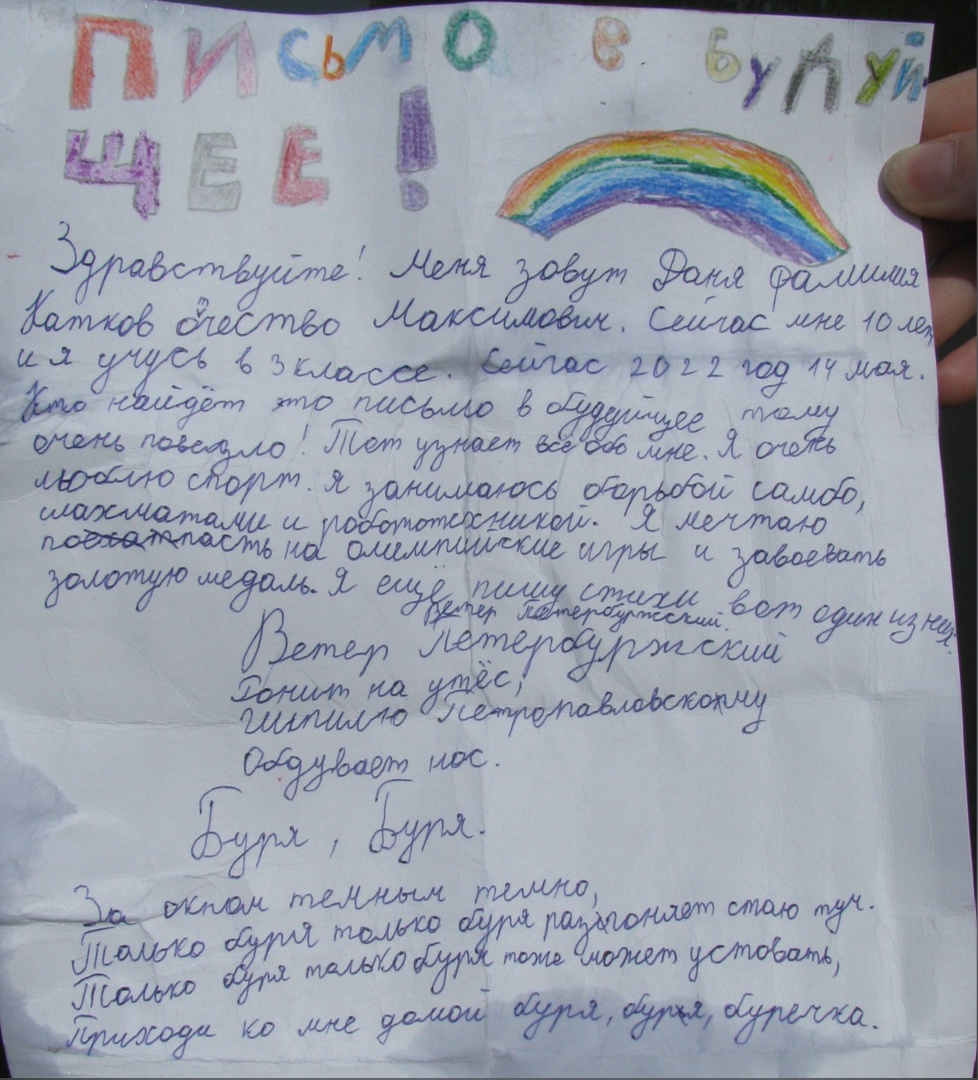 ПИСЬМО В БУДУЙ
ЩЕЕ!
Здравствуйте! Меня зовут Даня фамилия
Катков отчество Максимович. Сейчас мне 10 лет
и я учусь в 3 классе. Сейчас 2022 год 14 мая.
Кто найдёт это письмо в будуйщее тому
очень повезло! Тот узнает всё обо мне. Я очень
люблю спорт. Я занимаюсь борьбой самбо,
шахматами и робототехникой. Я мечтаю
попасть на олимпийские игры и завоевать
золотую медаль. Я ещё пишу стихи вот один из них.
Ветер Петербуржский.
Ветер Петербуржский
Гонит на утёс,
Шпилю Петропавловскому
Обдувает нос.
Буря, Буря.
За окном темным темно,
Только буря только буря разгоняет стаю туч.
Только буря только буря тоже может устовать,
Приходи ко мне домой буря, буря, буречка.